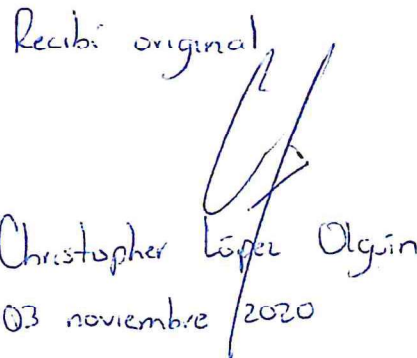 Recibi original
Christopher López Olguin
03 noviembre 2020